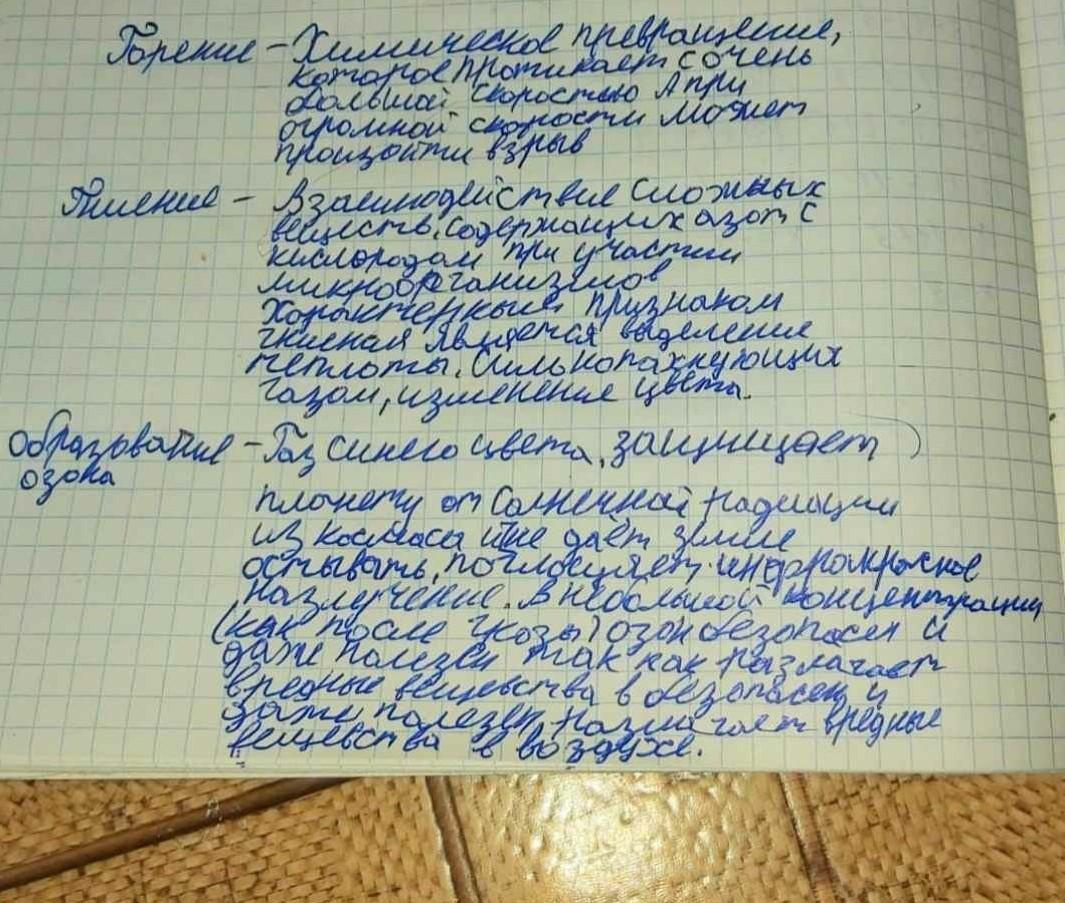 Горение – Химическое превращение,
которое протикает с очень
большой скоростью А при
огромной скорости может
произойти взрыв
Гниение – Взаимодействие сложных
веществ, содержащих азот с
кислородом при участии
микроорганизмов
Характерным признаком
гниения является выделение
теплоты, сильнопахнующих
газом, изменение цвета.
Образование – Газ синего цвета, защищает
озона
планету от Солнечной радиации
из космоса и не даёт земле
остывать, поглощяет инфракрасное
излучение. В небольшой концентрации
(как после грозы) озон безопасен и
даже полезен так как разлагает
вредные вещевства в безопасен и
даже полезен, разлагает вредные
вещевства в воздухе.